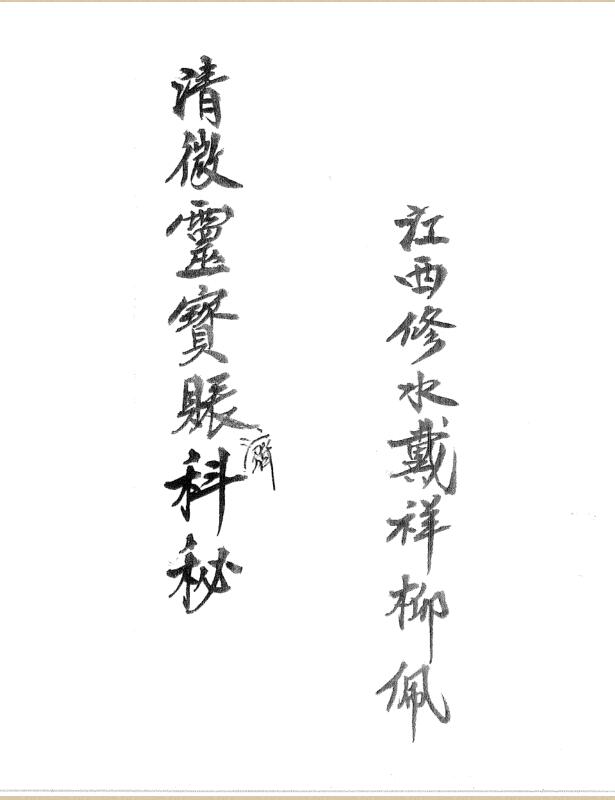 江西修水戴祥柳佩
清微靈寳賑濟科秘